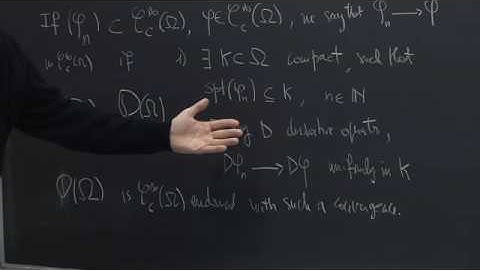 If (φₙ) ⊂ 𝒞_c^∞(Ω), φ ∈ 𝒞_c^∞(Ω), we say that φₙ ⟶ φ
in 𝒞_c^∞(Ω) if i) ∃ K ⊂ Ω compact, such that
𝒟(Ω) spt(φₙ) ⊆ K, n ∈ ℕ
D derivative
Dφₙ ⟶ Dφ uniformly in K
𝒟(Ω) is 𝒞_c^∞(Ω) endowed with such a convergence.